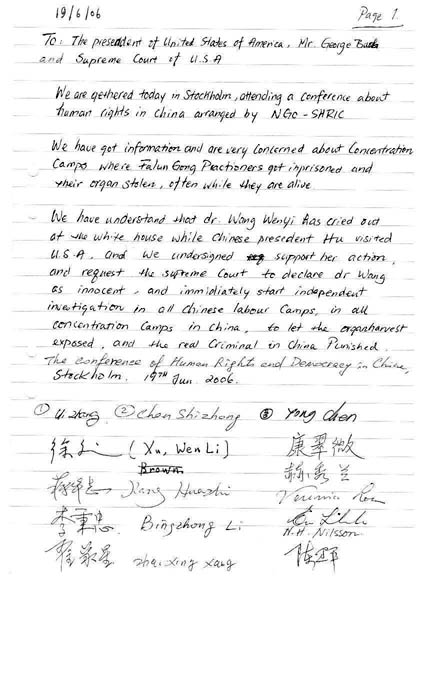 19/6/06 Page 1.
To: The presedent of United States of America, Mr. George Bush
and Supreme Court of U.S.A
We are gethered today in Stockholm, attending a conference about
human rights in China arranged by NGO-SHRIC
We have got information and are very concerned about Concentration
Camps where Falun Gong Practioners got inprisoned and
their organ stolen, often while they are alive
We have understand that dr. Wang Wenyi has cried out
at the white house while Chinese presedent Hu visited
U.S.A. and we undersigned support her action,
and request the supreme Court to declare dr Wang
as innocent, and immidiately start independent
investigation in all chinese labour Camps, in all
concentration Camps in China, to let the organharvest
exposed, and the real Criminal in China Punished.
The Conference of Human Right and Democracy in China,
Stockholm. 19TH Jun. 2006.
① Li zhong ② Chen Shizhong ③ Yong Chen
徐 (Xu, Wen Li) 康翠微
Brown 秀兰
Huashi
李重忠 Bingzhong Li
H.H. Nilsson
xing xang 陆